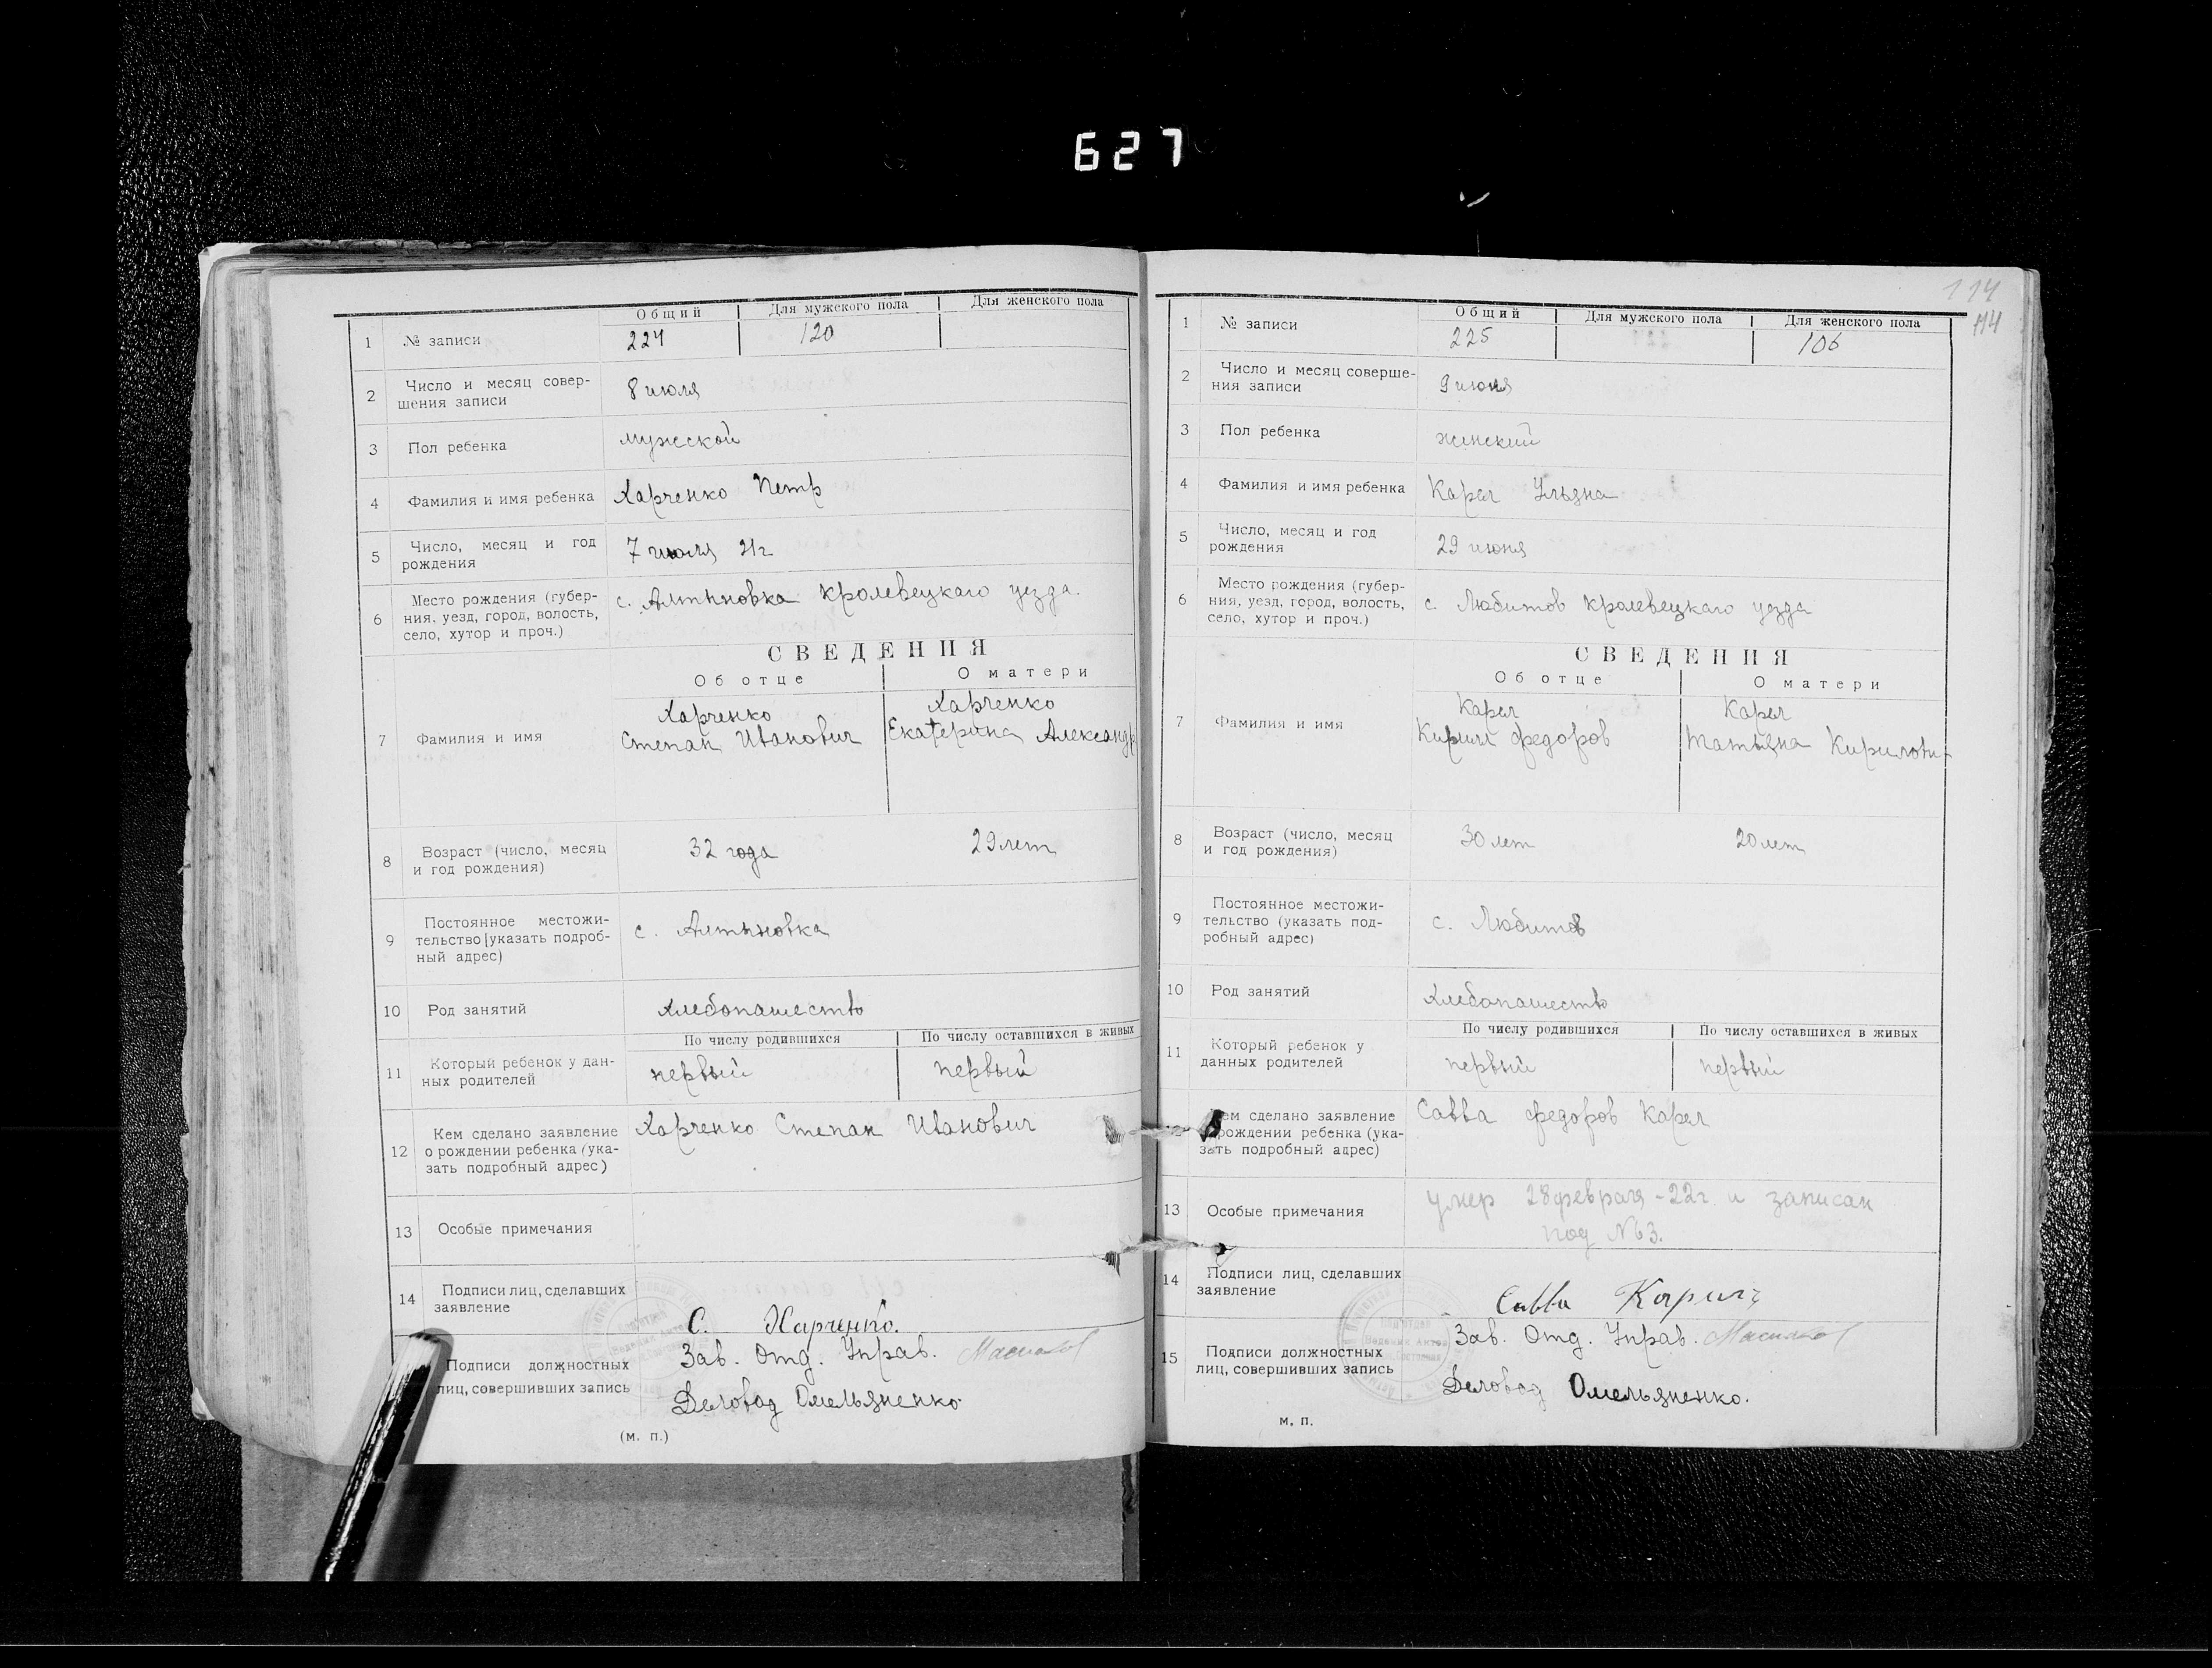 627
Общий Для мужского пола Для женского пола
1 № записи 224 120
2 Число и месяц совер-
шения записи 8 июля
3 Пол ребенка мужской
4 Фамилия и имя ребенка Харченко Петр
5 Число, месяц и год
рождения 7 июля 21г
6 Место рождения (губер-
ния, уезд, город, волость,
село, хутор и проч.) с. Алтыновка кролевецкаго уезда.
СВЕДЕНИЯ
Об отце О матери
7 Фамилия и имя
Харченко Харченко
Степан Иванович Екатерина Александр
8 Возраст (число, месяц
и год рождения) 32 года 29 лет
9 Постоянное местожи-
тельство [указать подроб-
ный адрес) с. Алтыновка
10 Род занятий хлебопашество
По числу родившихся По числу оставшихся в живых
11 Который ребенок у дан-
ных родителей первый первый
12 Кем сделано заявление
о рождении ребенка (ука-
зать подробный адрес) Харченко Степан Иванович
13 Особые примечания
14 Подписи лиц, сделавших
заявление С. Харченко.
Подписи должностных
лиц, совершивших запись
Зав. Отд. Управ.
Деловод Омельяненко.
(м. п.)
114
114
Общий Для мужского пола Для женского пола
1 № записи 225 106
2 Число и месяц соверше-
ния записи 9 июля
3 Пол ребенка женский
4 Фамилия и имя ребенка Карел Ульяна
5 Число, месяц и год
рождения 29 июня
6 Место рождения (губер-
ния, уезд, город, волость,
село, хутор и проч.) с. Любитов кролевецкаго уезда
СВЕДЕНИЯ
Об отце О матери
7 Фамилия и имя
Карел Карел
Кирил федоров Татьяна Кирилови-
8 Возраст (число, месяц
и год рождения) 30 лет 20 лет
9 Постоянное местожи-
тельство (указать под-
робный адрес) с. Любитов
10 Род занятий хлебопашество
По числу родившихся По числу оставшихся в живых
11 Который ребенок у
данных родителей первый первый
Кем сделано заявление
рождении ребенка (ука-
зать подробный адрес) Савва федоров Карел
13 Особые примечания умер 28 февраля -22г. и записан
под №63.
14 Подписи лиц, сделавших
заявление Савва
15 Подписи должностных
лиц, совершивших запись
Зав. Отд. Управ.
Деловод Омельяненко.
м. п.